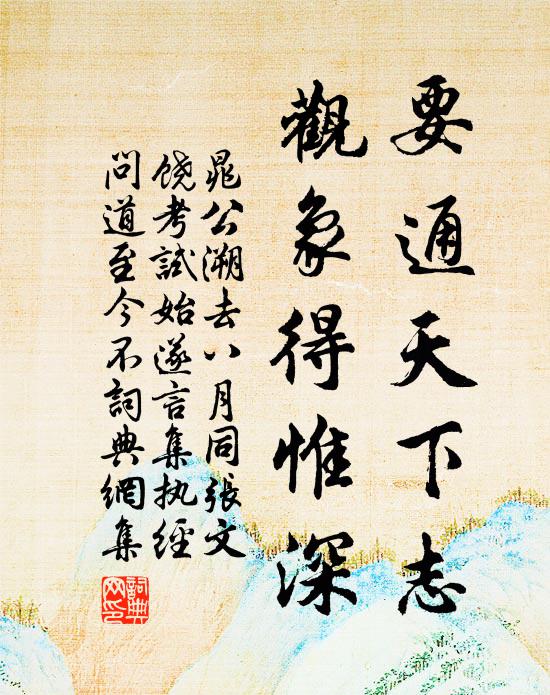 要通天下志
觀象得惟深
晁公溯去八月同張文
饒考試始遂言集执經
問道至今不詞典網集
詞典
网印